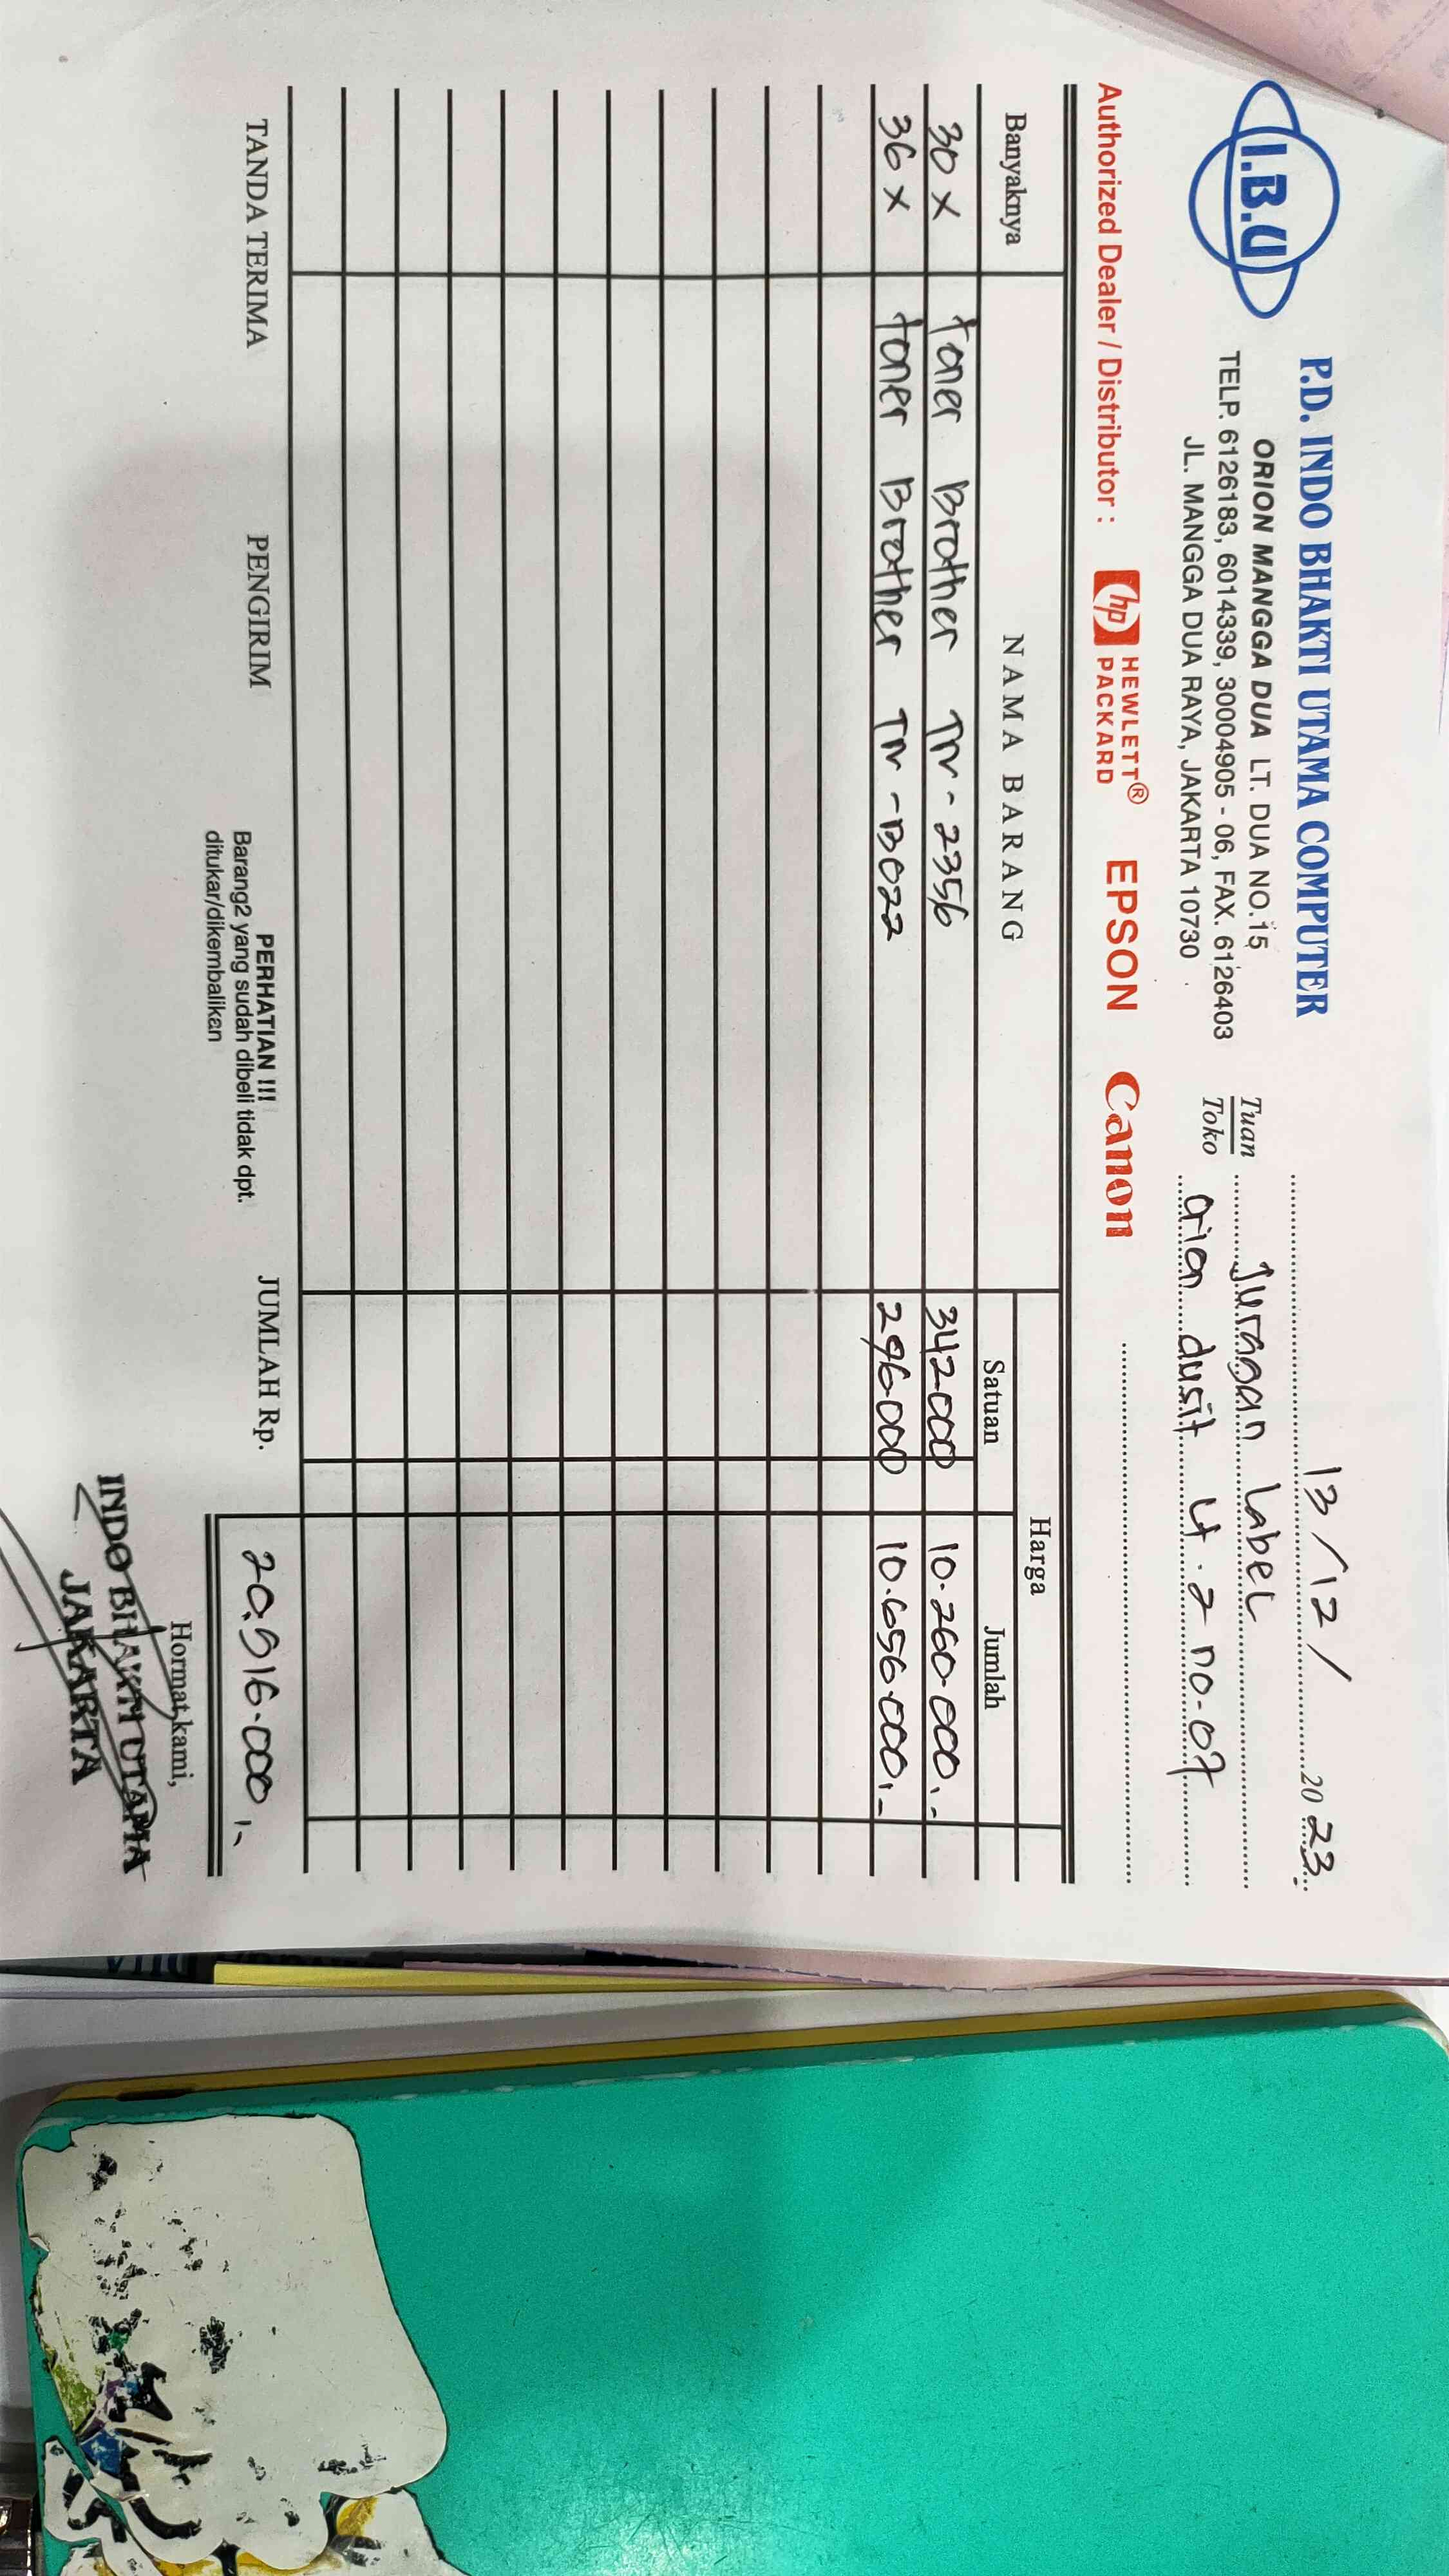 I.B.U
P.D. INDO BHAKTI UTAMA COMPUTER
ORION MANGGA DUA LT. DUA NO.15
TELP. 6126183, 6014339, 30004905 - 06, FAX. 6126403
JL. MANGGA DUA RAYA, JAKARTA 10730
13/12/ 20 23
Tuan Juragan Label
Toko Orion dusit Lt. 2 no. 07
Authorized Dealer / Distributor : hp HEWLETT® PACKARD EPSON Canon
Banyaknya NAMA BARANG Harga
Satuan Jumlah
30 x Toner Brother TN - 2356 342.000 10.260.000,-
36 x Toner Brother TN - B022 296.000 10.656.000,-
TANDA TERIMA PENGIRIM JUMLAH Rp. 20.916.000,-
PERHATIAN !!!
Barang2 yang sudah dibeli tidak dpt.
ditukar/dikembalikan
Hormat kami,
INDO BHAKTI UTAMA
JAKARTA